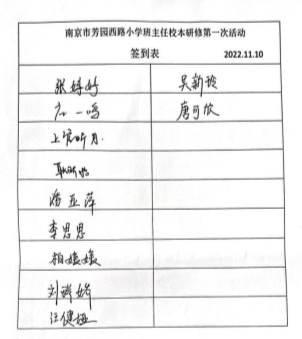 南京市芳园西路小学班主任校本研修第一次活动
签到表 2022.11.10
张婷婷 吴新玲
石一鸣 唐可欣
上官昕月
潘亚萍
李思思
刘
汪健娅